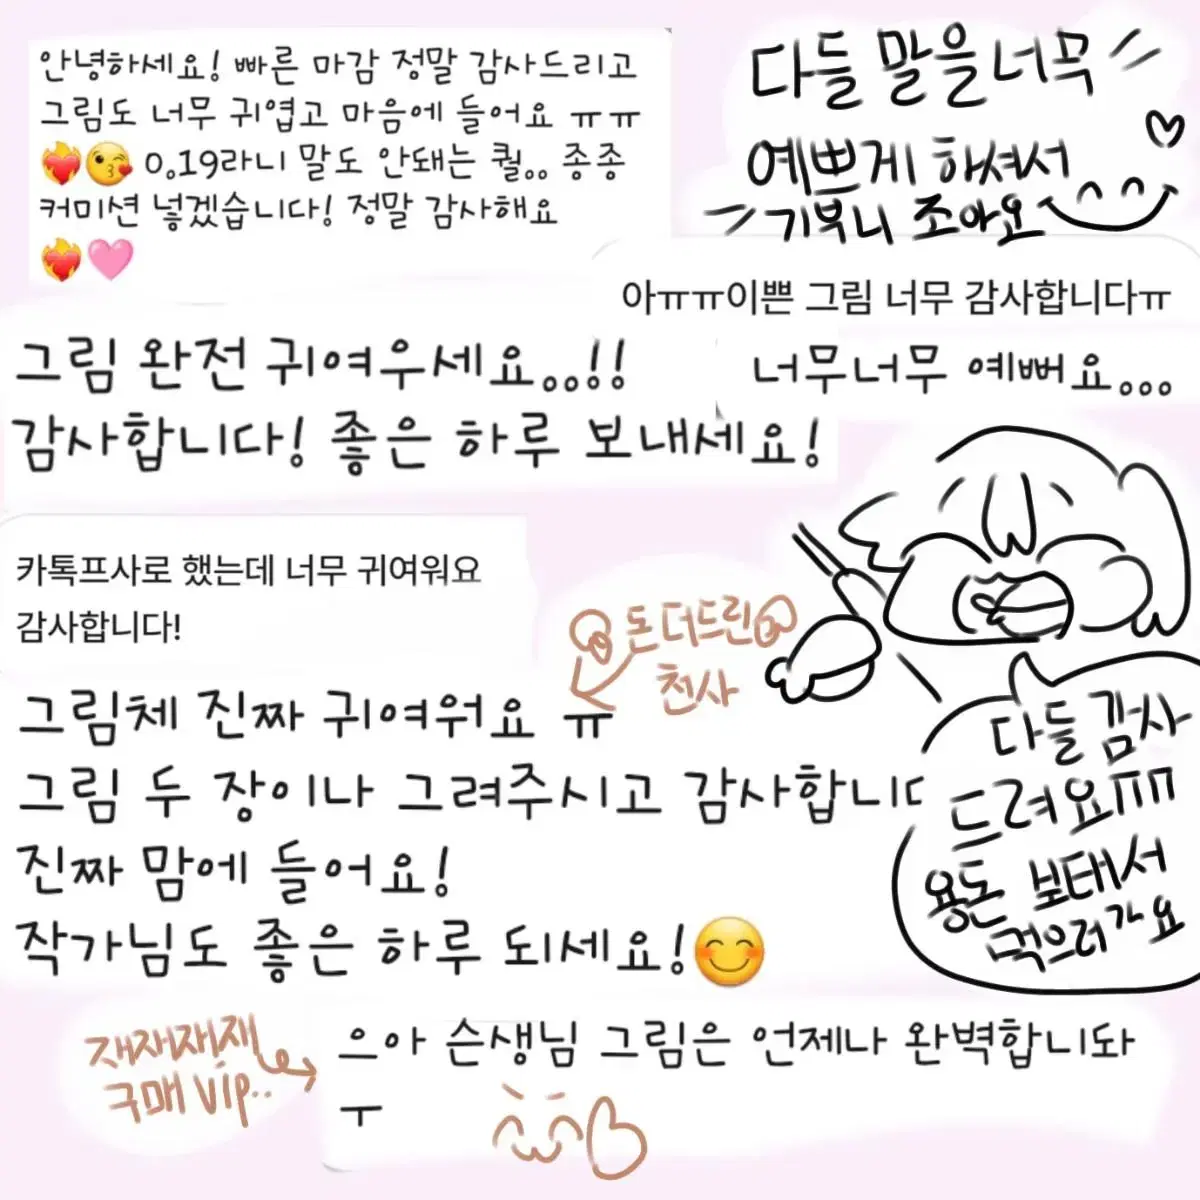 안녕하세요! 빠른 마감 정말 감사드리고
그림도 너무 귀엽고 마음에 들어요 ㅠㅠ
❤️‍🔥😘 0.19라니 말도 안돼는 퀄.. 종종
커미션 넣겠습니다! 정말 감사해요
❤️‍🔥🩷
다들 말을 너무
예쁘게 하셔서
기부니 조아요
아ㅠㅠ이쁜 그림 너무 감사합니다ㅠ
너무너무 예뻐요...
그림 완전 귀여우세요..!!
감사합니다! 좋은 하루 보내세요!
카톡프사로 했는데 너무 귀여워요
감사합니다!
돈 더드린
천사
그림체 진짜 귀여워요 ㅠ
그림 두 장이나 그려주시고 감사합니다
진짜 맘에 들어요!
작가님도 좋은 하루 되세요!😊
다들 감사
드려요ㅠㅠ
용돈 보태서
먹으러가요
재재재재
구매 vip..
으아 슨생님 그림은 언제나 완벽합니돠
ㅜ